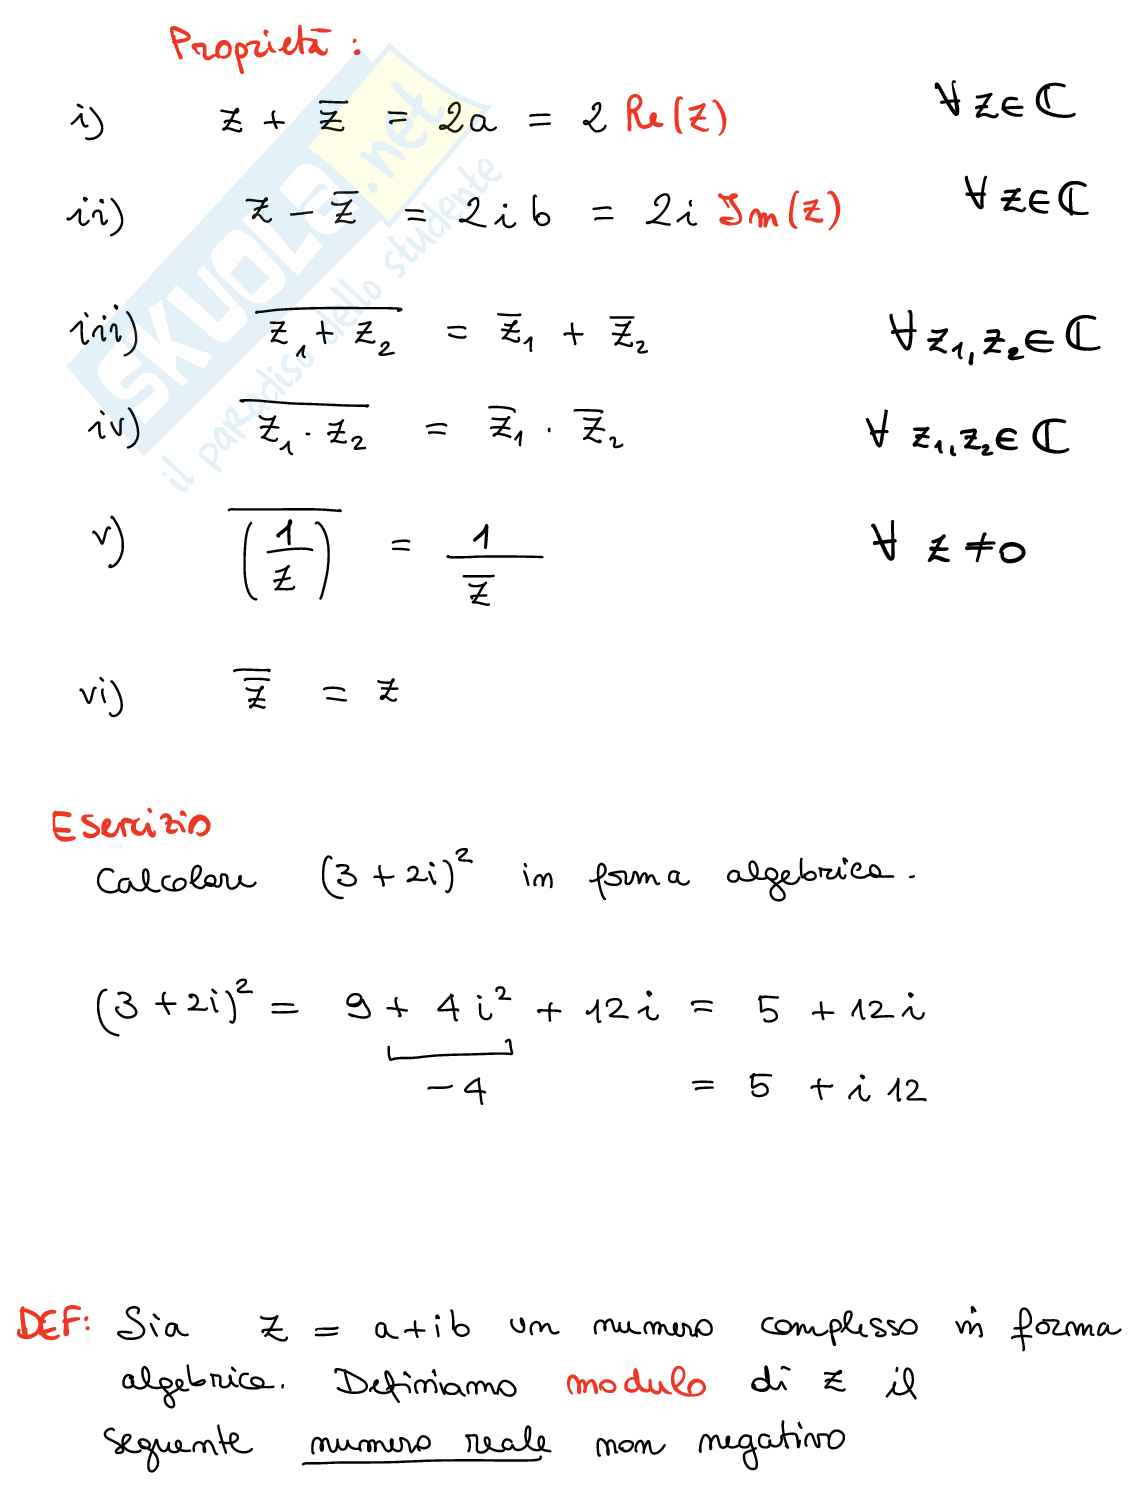 Proprietà:
i) z + z̅ = 2a = 2 Re(z) ∀ z ∈ ℂ
ii) z − z̅ = 2ib = 2i Im(z) ∀ z ∈ ℂ
iii) \overline{z₁ + z₂} = z̅₁ + z̅₂ ∀ z₁, z₂ ∈ ℂ
iv) \overline{z₁ · z₂} = z̅₁ · z̅₂ ∀ z₁, z₂ ∈ ℂ
v) \overline{(1/z)} = 1/z̅ ∀ z ≠ 0
vi) \overline{z̅} = z
SKUOLA.net
il paradiso dello studente
Esercizio
Calcolare (3 + 2i)² in forma algebrica.
(3 + 2i)² = 9 + 4i² + 12i = 5 + 12i
−4 = 5 + i 12
DEF: Sia z = a+ib un numero complesso in forma
algebrica. Definiamo modulo di z il
seguente numero reale non negativo